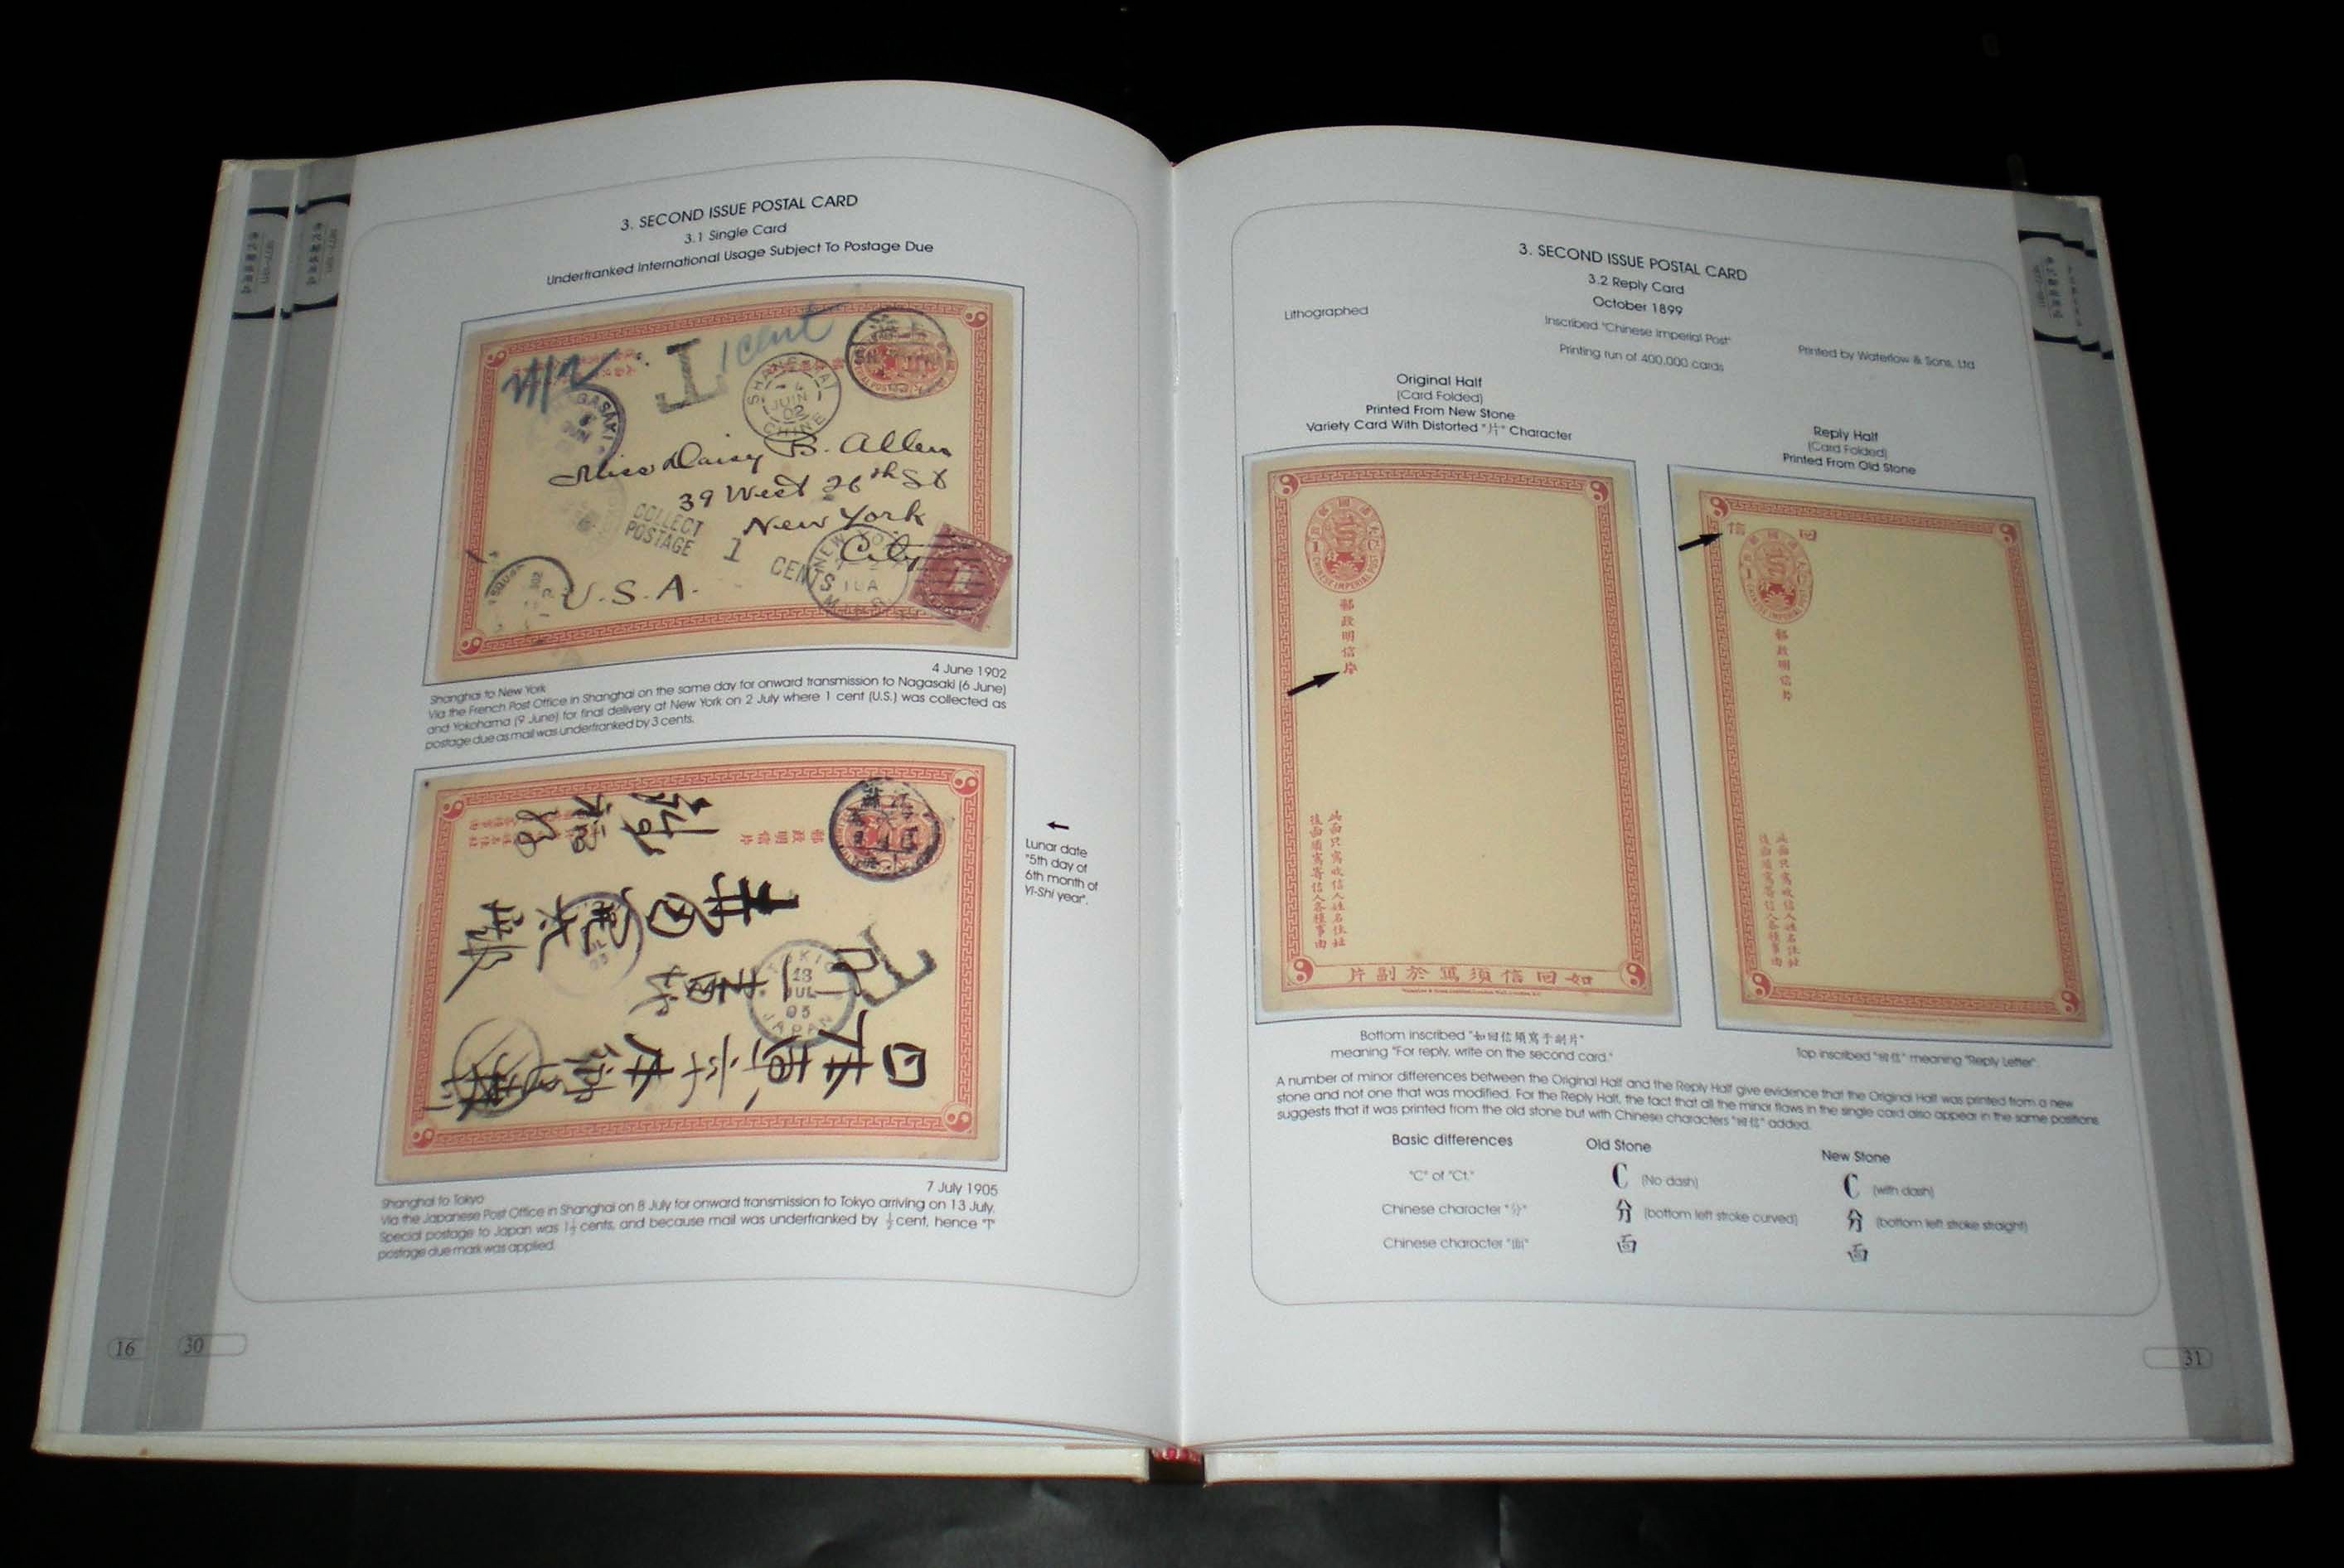 3. SECOND ISSUE POSTAL CARD
3.1 Single Card
Underfranked International Usage Subject To Postage Due
1 cent
T
SHANG HAI
4
JUIN
02
CHINE
NAGASAKI
Miss Daisy B. Allen
39 West 26th St
New York
City
U.S.A.
COLLECT
POSTAGE
1
CENTS
4 June 1902
Shanghai to New York
Via the French Post Office in Shanghai on the same day for onward transmission to Nagasaki (6 June)
and Yokohama (9 June) for final delivery at New York on 2 July where 1 cent (U.S.) was collected as
postage due as mail was underfranked by 3 cents.
郵政明信片
13
JUL
05
JAPAN
T
Lunar date
"5th day of
6th month of
Yi-Shi year".
7 July 1905
Shanghai to Tokyo
Via the Japanese Post Office in Shanghai on 8 July for onward transmission to Tokyo arriving on 13 July.
Special postage to Japan was 1½ cents, and because mail was underfranked by ½ cent, hence "T"
postage due mark was applied.
16
30
3. SECOND ISSUE POSTAL CARD
3.2 Reply Card
October 1899
Lithographed
Inscribed "Chinese Imperial Post"
Printed by Waterlow & Sons, Ltd
Printing run of 400,000 cards
Original Half
(Card Folded)
Printed From New Stone
Variety Card With Distorted "片" Character
Reply Half
(Card Folded)
Printed From Old Stone
CHINESE IMPERIAL POST
郵政明信片
此面只寫收信人姓名住址
後面須寫寄信人各種事由
如回信須寫於副片
回信
郵政明信片
此面只寫收信人姓名住址
後面須寫寄信人各種事由
Bottom inscribed "如回信須寫于副片"
meaning "For reply, write on the second card."
Top inscribed "回信" meaning "Reply Letter".
A number of minor differences between the Original Half and the Reply Half give evidence that the Original Half was printed from a new
stone and not one that was modified. For the Reply Half, the fact that all the minor flaws in the single card also appear in the same positions
suggests that it was printed from the old stone but with Chinese characters "回信" added.
Basic differences
Old Stone
New Stone
"C" of "Ct."
C (No dash)
C (with dash)
Chinese character "分"
分 (bottom left stroke curved)
分 (bottom left stroke straight)
Chinese character "面"
面
面
31